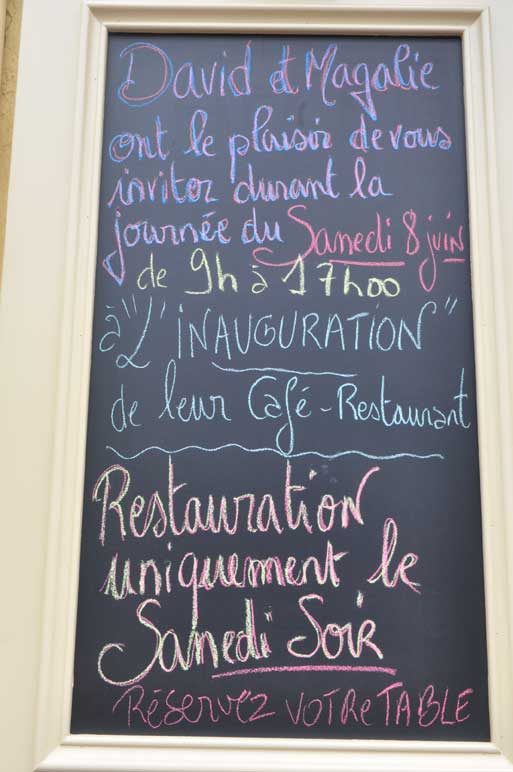 David et Magalie
ont le plaisir de vous
inviter durant la
journée du Samedi 8 juin
de 9h à 17h00
à "L'INAUGURATION"
de leur Café - Restaurant
Restauration
uniquement le
Samedi Soir
Réservez VOTRE TABLE